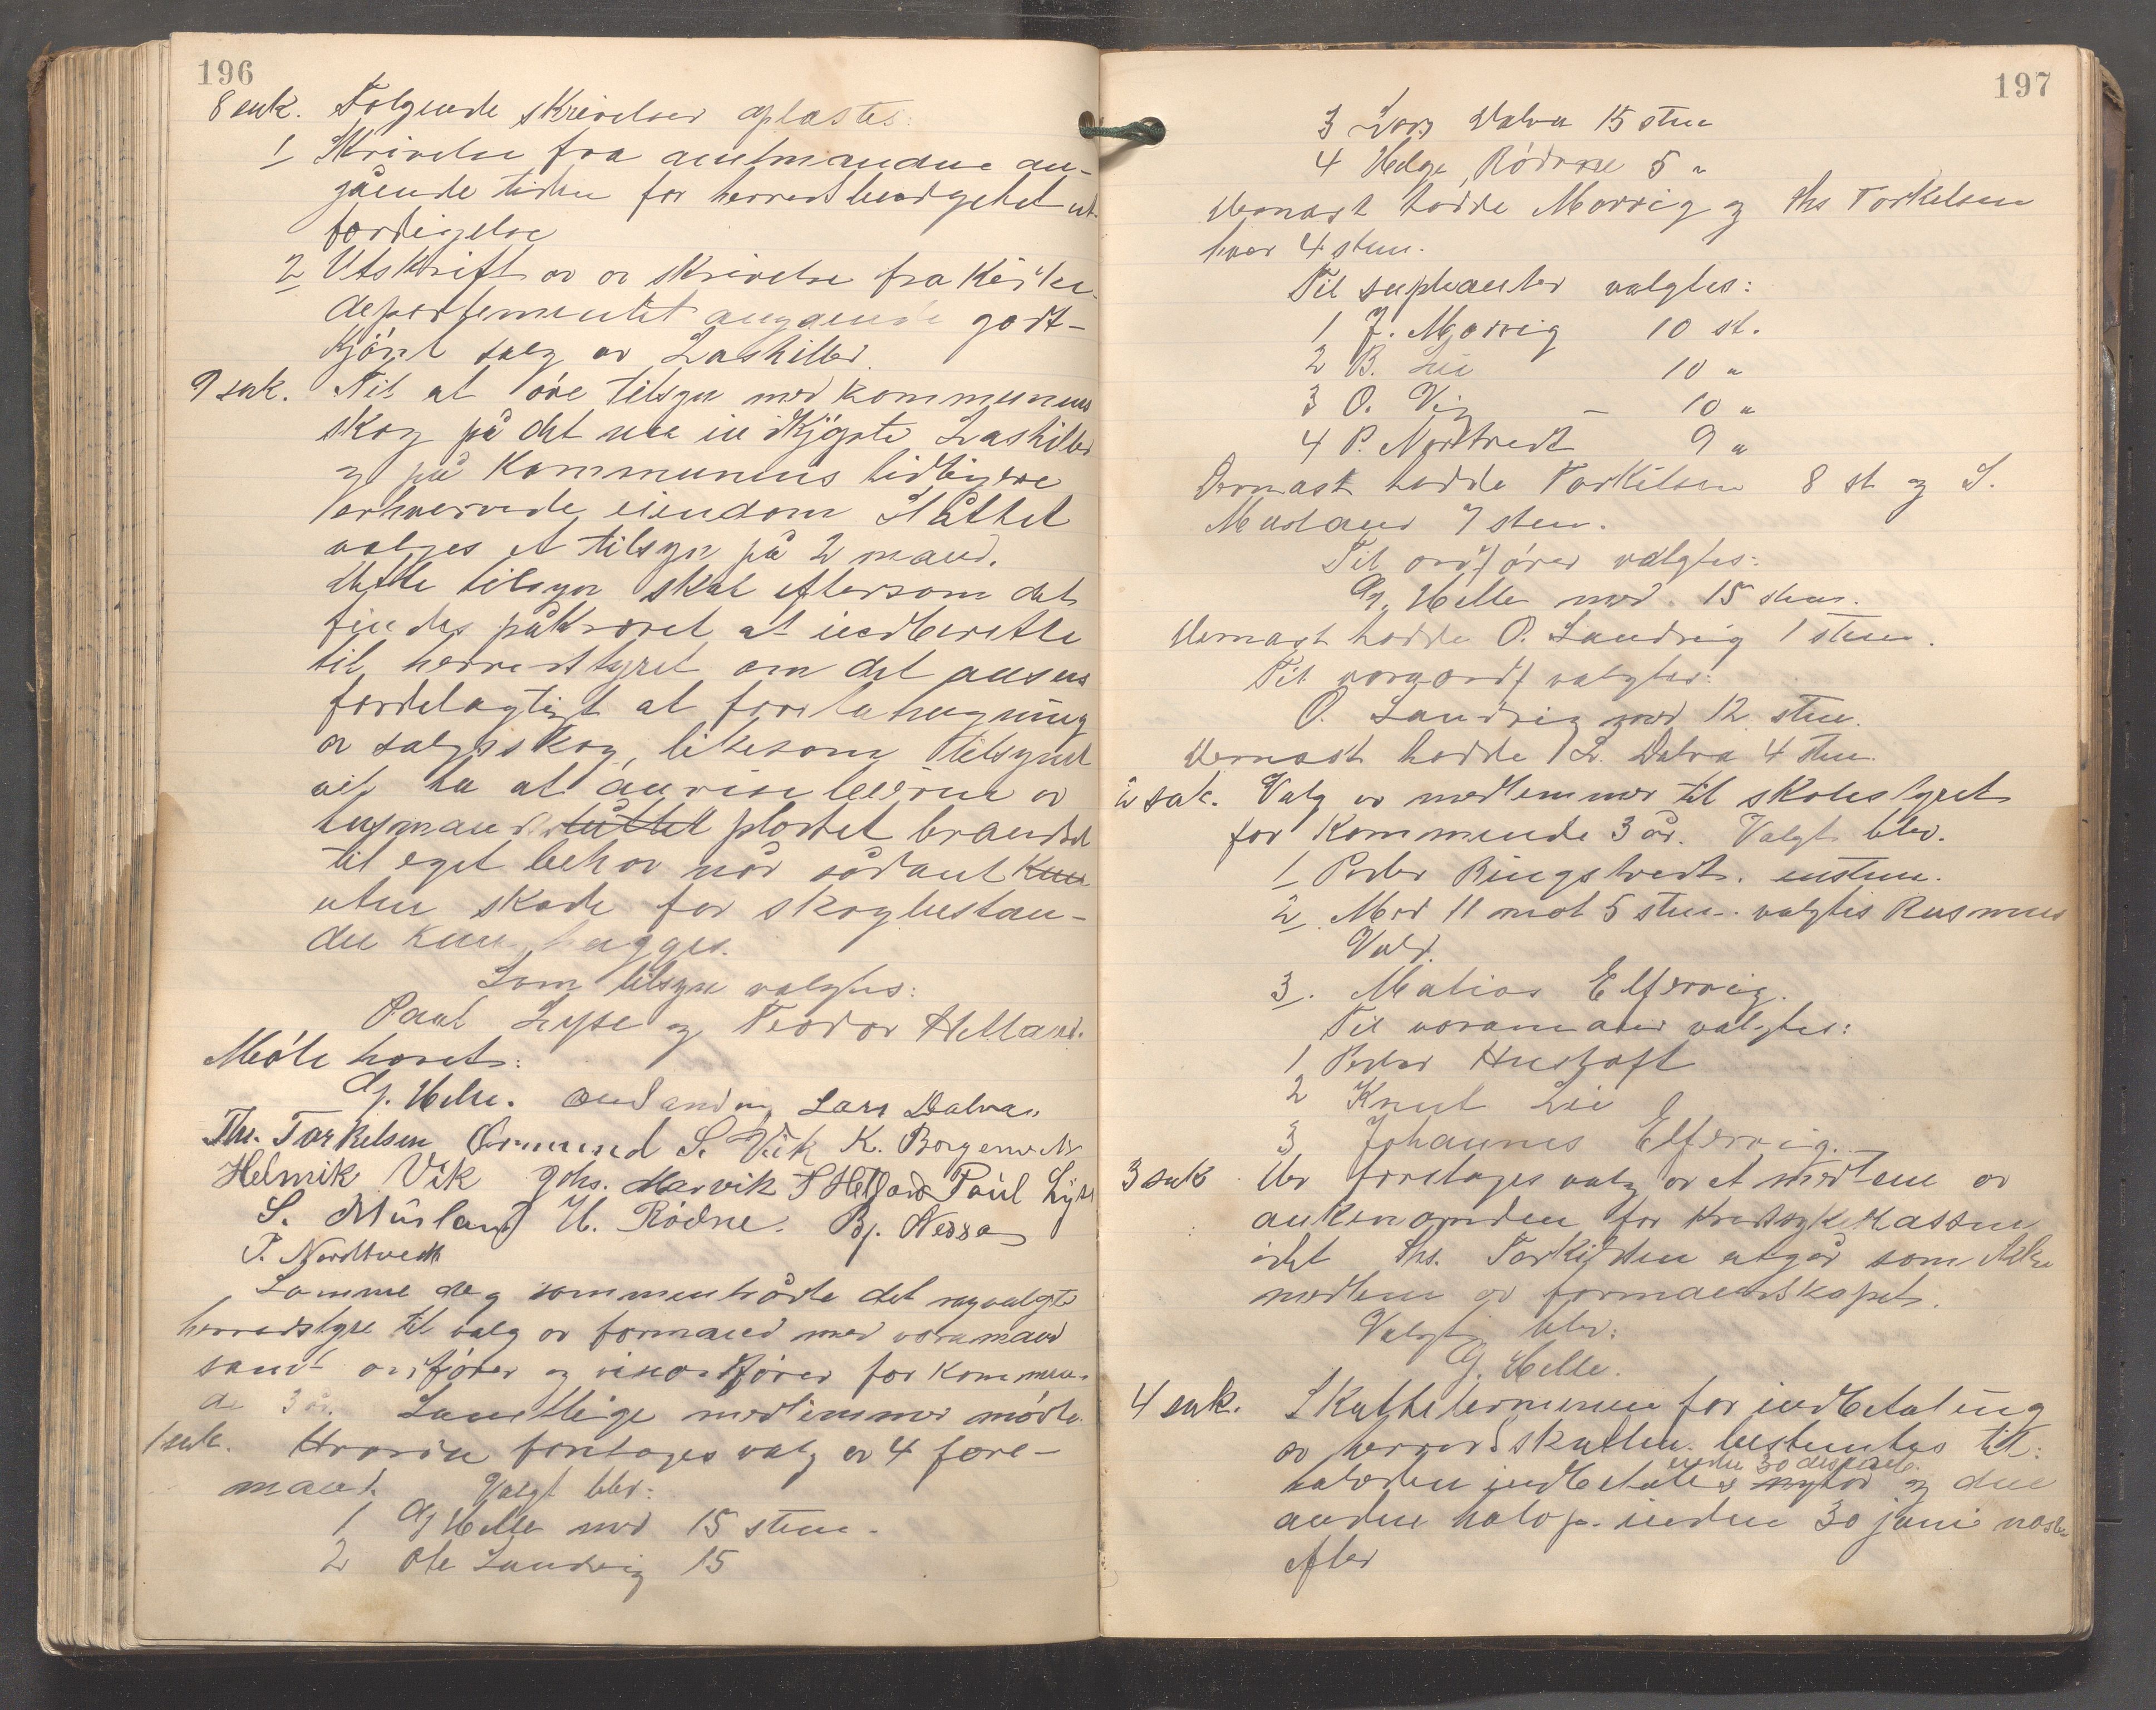 196
8 sak. Følgende skrivelser oplæstes:
1 Skrivelse fra amtmanden an-
gående tiden for herredsbudgettet ut-
færdigelse
2 Utskrift av av skrivelse fra Kirke-
departementet angaende godt-
kjönt salg av Lashiller.
9 sak. Til at öve tilsyn med kommunens
skog på det nu indkjøpte Lashiller
og på kommunens tidligere
erhvervede eiendom Slåttet
valges et tilsyn på 2 mand.
Dette tilsyn skal eftersom det
findes påkrævet at indberette
til herredstyret om det ansees
fordelagtigt at foreta hugning
av salgsskog, likesom tilsynet
vil ha at anvise leierne av
husmand slåttet pladset brændsel
til eget behov når sådant kun
uten skade for skogbestan-
den kun hugges.
Som tilsyn valgtes:
Paul Lyse og Teodor Helland.
Møte hævet:
Gj. Helle. Lars Dalva
Ths. Torkelsen Gunmund S. Vik K. Borgen
Helmik Vik Johs. Marvik Paul Lyse
S. Musland H. Rödne. Bj. Nessa
P. Nordtvedt
Samme dag sammentrådte det nyvalgte
herredstyre til valg av formænd med varamænd
samt ordfører og viseordfører for kommen-
de 3 år. Samtlige medlemmer mødte.
1 sak. Hvorda foretages valg av 4 fore-
mænd. Valgt blev:
1 Gj Helle med 15 stem.
2 Ole Sandvig 15
197
3 Lars Dalva 15 stem
4 Helge Rödne 5 "
Dernæst hadde Marvig og Ths Torkelsen
hver 4 stem.
Til supleanter valgtes:
1 J. Marvig 10 st.
2 B. Lie 10 "
3 O. Vig – 10 "
4 P. Nortvedt 9 "
Dernæst hadde Torkilsen 8 st og S.
Musland 7 stem.
Til ordfører valgtes:
Gj. Helle med 15 stem.
Dernæst hadde O. Sandvig 1 stem.
Til varaordf valgtes:
O. Sandvig med 12 stem.
Dernæst hadde L. Dalva 4 stem.
2 sak. Valg av medlemmer til skolestyret
for kommende 3 år. Valgt blev.
1 Peder Ringstvedt. enstem.
2 Med 11 mot 5 stem. valgtes Rasmus
Vald.
3. Matias Elfervig.
Til varamænd valgtes:
1 Peder Hustoft
2 Knut Lie
3 Johannes Elfervig.
3 sak Der foretages valg av et medlem av
ankenæmden for kredssykekassen
idet Ths. Torkildsen utgår som ikke
medlem av formandskapet.
Valgt blev:
Gj. Helle.
4 sak. Skatteterminen for indbetaling
av herredsskatten bestemtes til:
inden 30 desember
halvdelen indbetales nytår og den
anden halvp. inden 30 juni næst-
efter